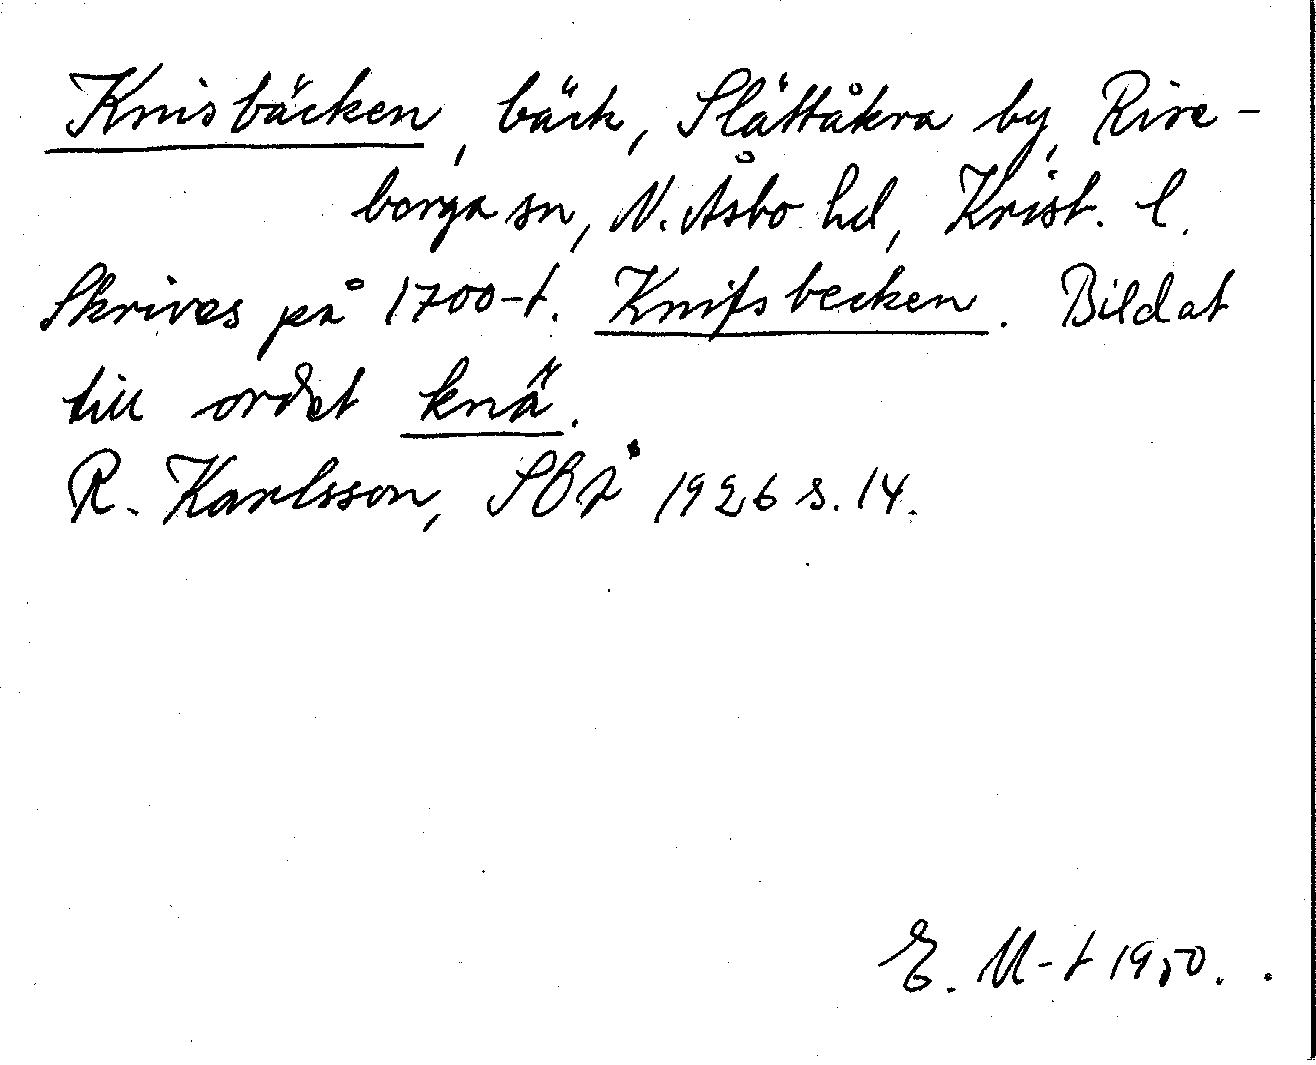 Knisbäcken, bäck, Slättåkra by, Rire-
borga sn, N. Åsbo hd, Krist. l.
Skrives på 1700-t. Knifsbecken. Bildat
till ordet knä.
R. Karlsson, SBÅ 1926 s. 14.
E. M-t 1950.